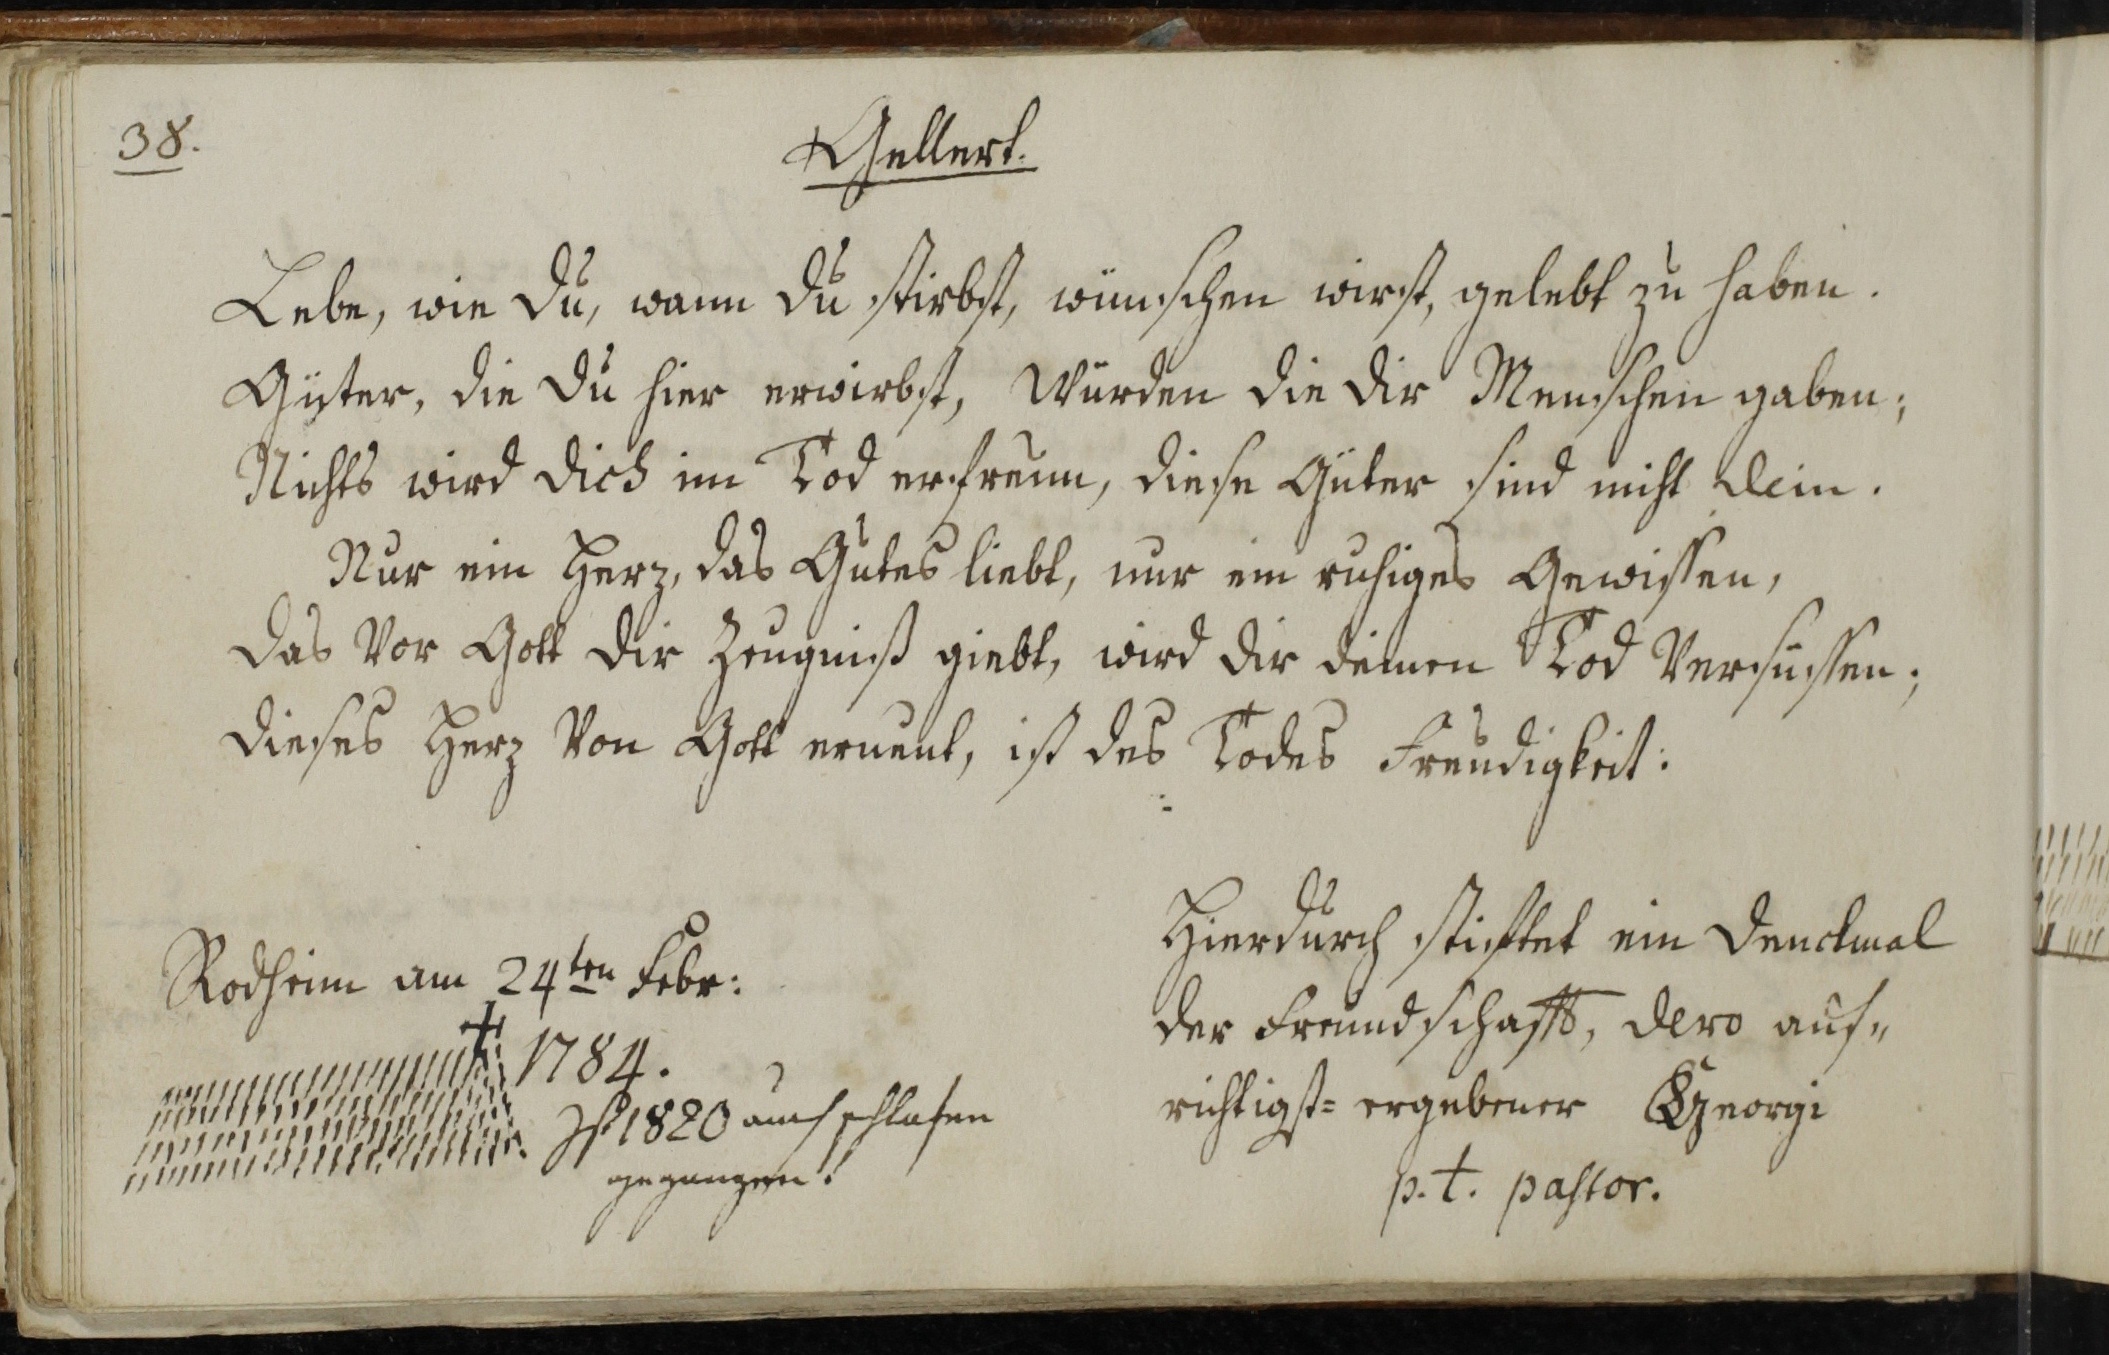 38.
Gellert.
Lebe, wie du, wann du stirbst, wünschen wirst, gelebt zu haben.
Güter, die du hier erwirbst, Würden die dir Menschen gaben;
Nichts wird dich im Tod erfreun, diese Güter sind nicht dein.
Nur ein Herz, das Gutes liebt, nur ein ruhiges Gewissen,
das vor Gott dir Zeugniß giebt, wird dir deinen Tod versüssen;
dieses Herz von Gott erneut, ist des Todes Freudigkeit:
Rodheim am 24ten Febr:
1784.
Ist 1820 auch schlafen
gegangen!
Hierdurch stiftet ein Denckmal
der Freundschafft, dero auf-
richtigst= ergebener Georgi
p. t. pastor.